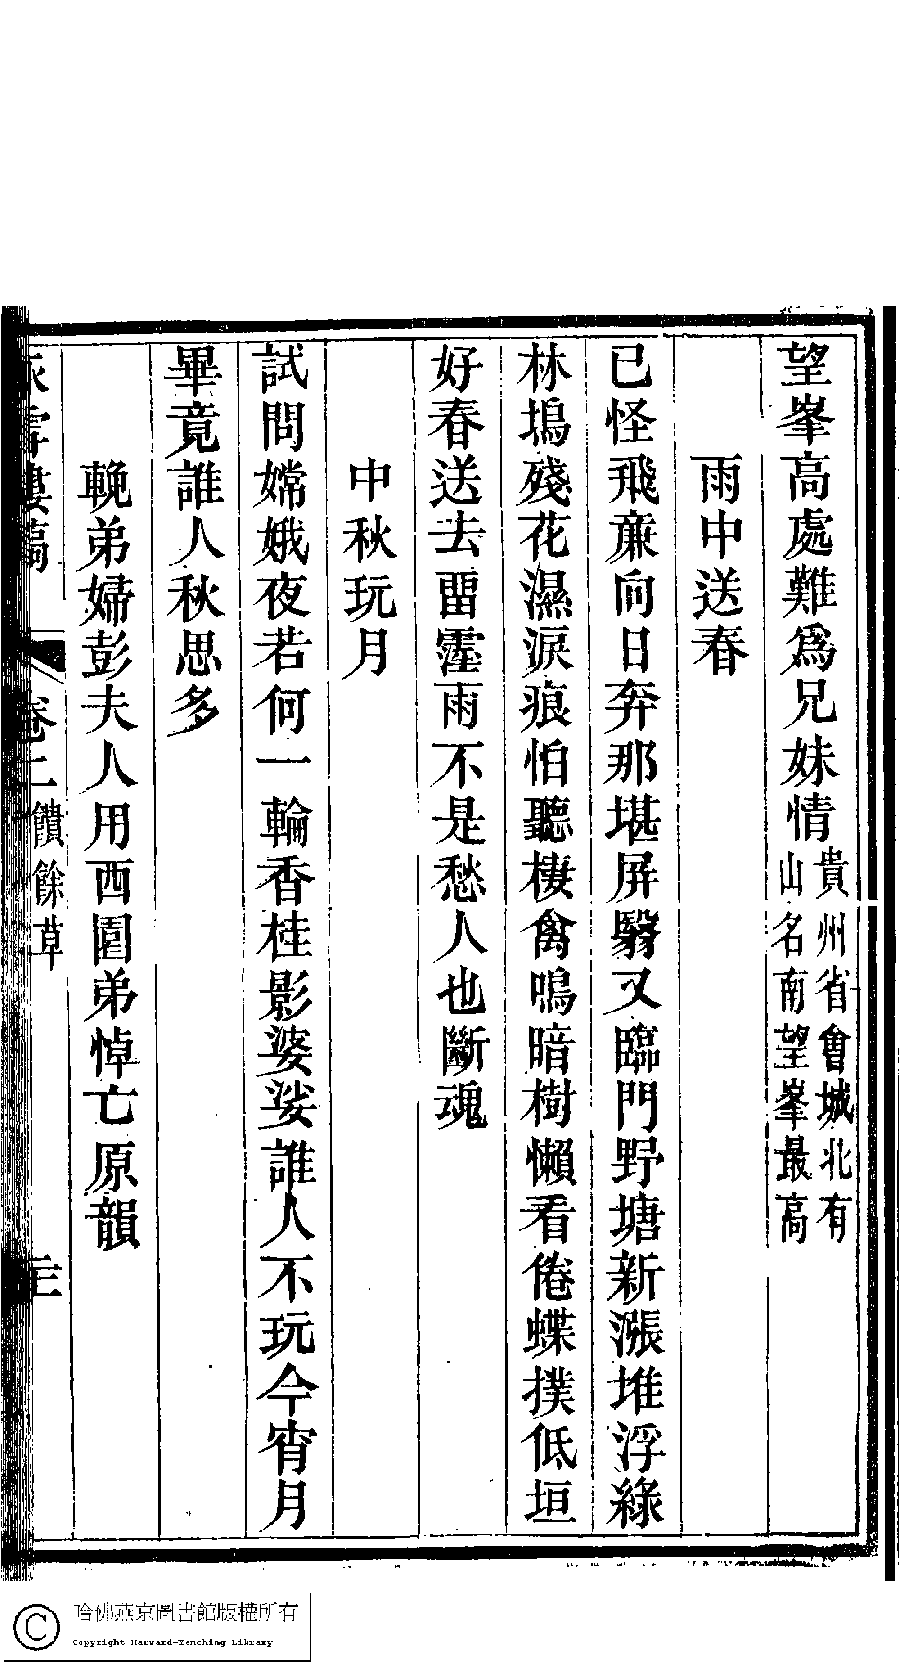 望峯高處難爲兄妹情貴州省會城北有山名南望峯最高
雨中送春
已怪飛亷向日奔那堪屏翳又臨門野塘新漲堆浮綠
林塢殘花濕淚痕怕聽棲禽鳴暗樹懶看倦蝶撲低垣
好春送去畱霪雨不是愁人也斷魂
中秋玩月
試問嫦娥夜若何一輪香桂影婆娑誰人不玩今宵月
畢竟誰人秋思多
輓弟婦彭夫人用西園弟悼亡原韻
雪樓稿
卷二 饋餘草
哈佛燕京圖書館版權所有
Copyright Harvard-Yenching Library